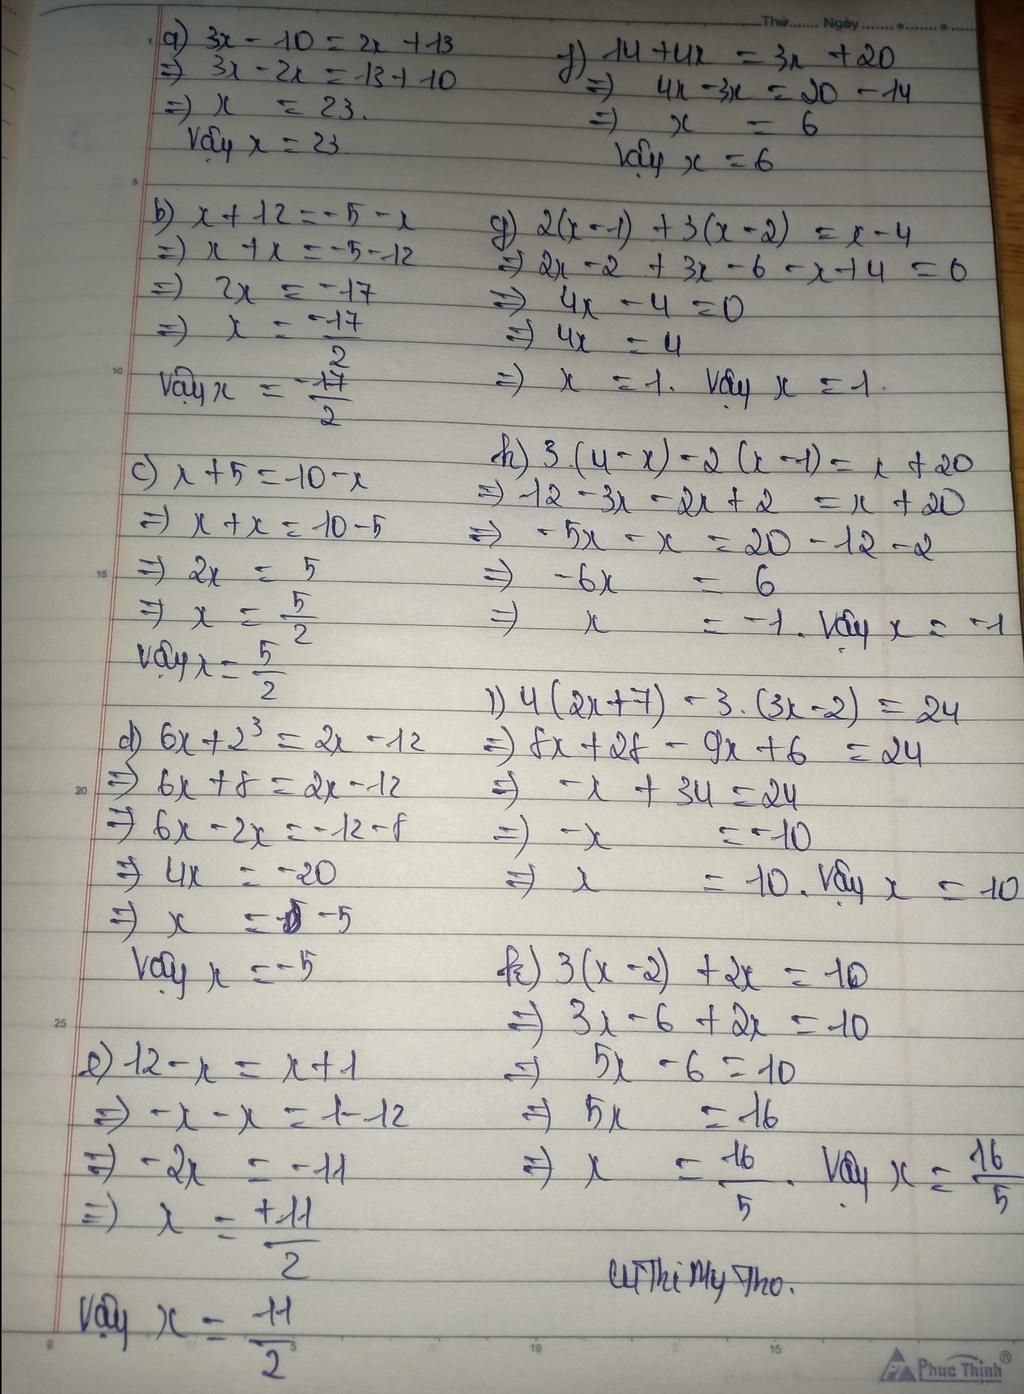 Thứ ........ Ngày ........
a) 3x - 10 = 2x + 13
=) 3x - 2x = 13 + 10
=) x = 23.
Vậy x = 23
b) x + 12 = -5 - x
=) x + x = -5 - 12
=) 2x = -17
=) x = -17/2
Vậy x = -17/2
c) x + 5 = 10 - x
=) x + x = 10 - 5
=) 2x = 5
=) x = 5/2
Vậy x = 5/2
d) 6x + 2³ = 2x - 12
=) 6x + 8 = 2x - 12
=) 6x - 2x = -12 - 8
=) 4x = -20
=) x = -5
Vậy x = -5
e) 12 - x = x + 1
=) -x - x = 1 - 12
=) -2x = -11
=) x = +11/2
Vậy x = 11/2
f) 14 + 4x = 3x + 20
=) 4x - 3x = 20 - 14
=) x = 6
Vậy x = 6
g) 2(x - 1) + 3(x - 2) = x - 4
=) 2x - 2 + 3x - 6 - x + 4 = 0
=) 4x - 4 = 0
=) 4x = 4
=) x = 1. Vậy x = 1.
h) 3.(4 - x) - 2(x - 1) = x + 20
=) 12 - 3x - 2x + 2 = x + 20
=) -5x - x = 20 - 12 - 2
=) -6x = 6
=) x = -1. Vậy x = -1
1) 4(2x + 7) - 3.(3x - 2) = 24
=) 8x + 28 - 9x + 6 = 24
=) -x + 34 = 24
=) -x = -10
=) x = 10. Vậy x = 10
k) 3(x - 2) + 2x = 10
=) 3x - 6 + 2x = 10
=) 5x - 6 = 10
=) 5x = 16
=) x = 16/5. Vậy x = 16/5
Thi My Tho.
5
10
15
20
25
0 5 10 15
Phuc Thinh®